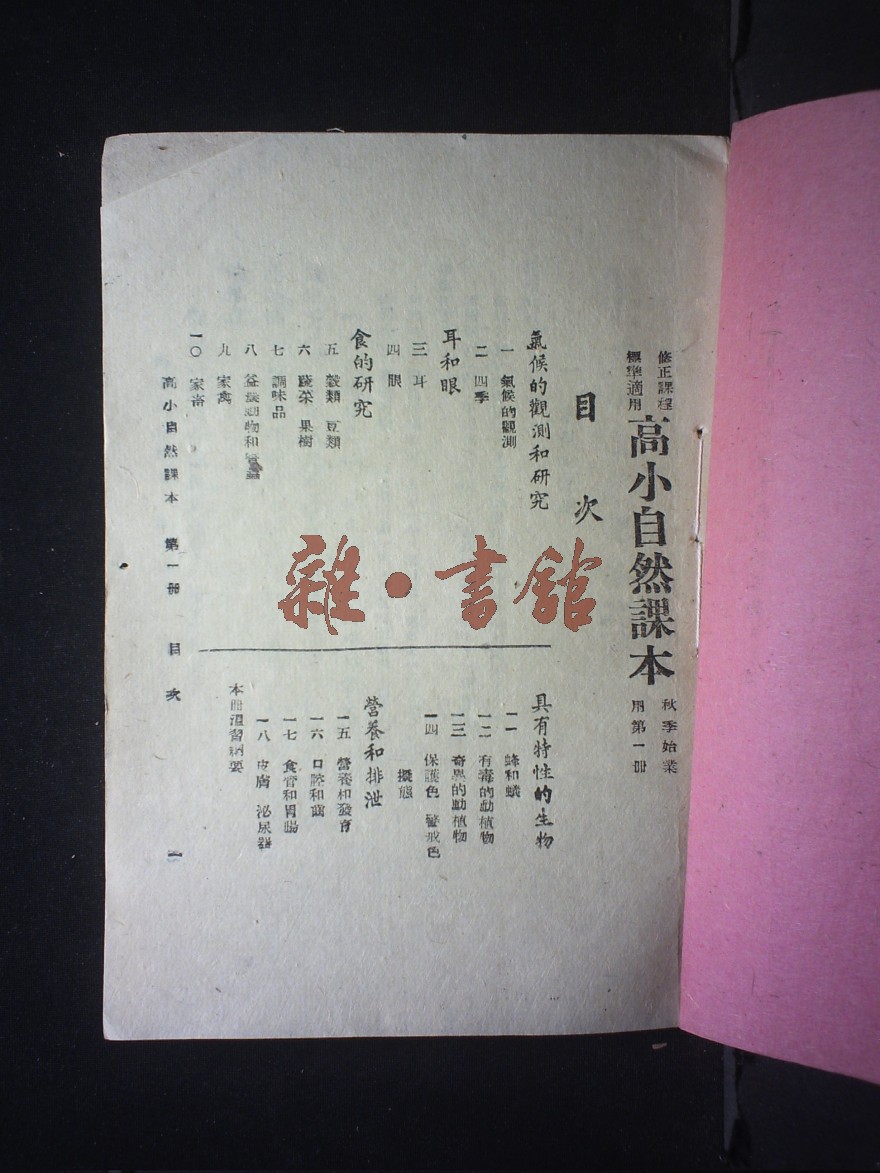 修正課程
標準適用
高小自然課本
秋季始業
用第一冊
目次
氣候的觀測和研究
一 氣候的觀測
二 四季
耳和眼
三 耳
四 眼
食的研究
五 穀類 豆類
六 蔬菜 果樹
七 調味品
八 益農動物和
九 家禽
一〇 家畜
具有特性的生物
一一 蜂和蟻
一二 有毒的動植物
一三 奇異的動植物
一四 保護色 警戒色
擬態
營養和排泄
一五 營養和發育
一六 口腔和齒
一七 食管和胃腸
一八 皮膚 泌尿器
本冊溫習綱要
高小自然課本 第一冊 目次 一
雜•書館